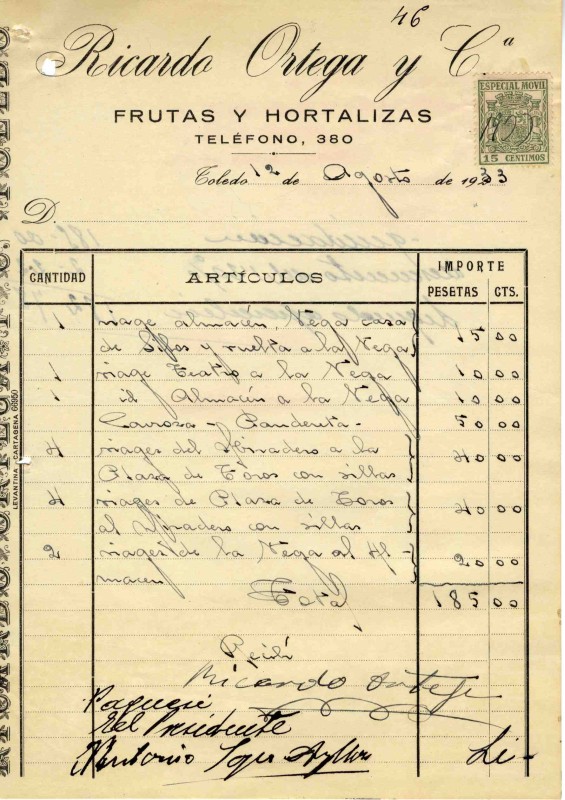 46
Ricardo Ortega y Cª
FRUTAS Y HORTALIZAS
TELÉFONO, 380
ESPECIAL MOVIL
15 CENTIMOS
Toledo 12 de Agosto de 1933
D.
CANTIDAD ARTÍCULOS IMPORTE
PESETAS CTS.
1 viage almacén, Vega casa
de Silos y vuelta a la Vega 15 00
1 viage Teatro a la Vega 10 00
1 id Almacén a la Vega 10 00
Carroza - Pandereta - 50 00
4 viages del Miradero a la
Plaza de Toros con sillas 40 00
4 viages de Plaza de Toros
al Miradero con sillas 40 00
2 viages de la Vega al Al-
macen 20 00
Total 185 00
Recibí
Ricardo Ortega
Paguese
El Presidente
Antonio
LEVANTINA - CARTAGENA